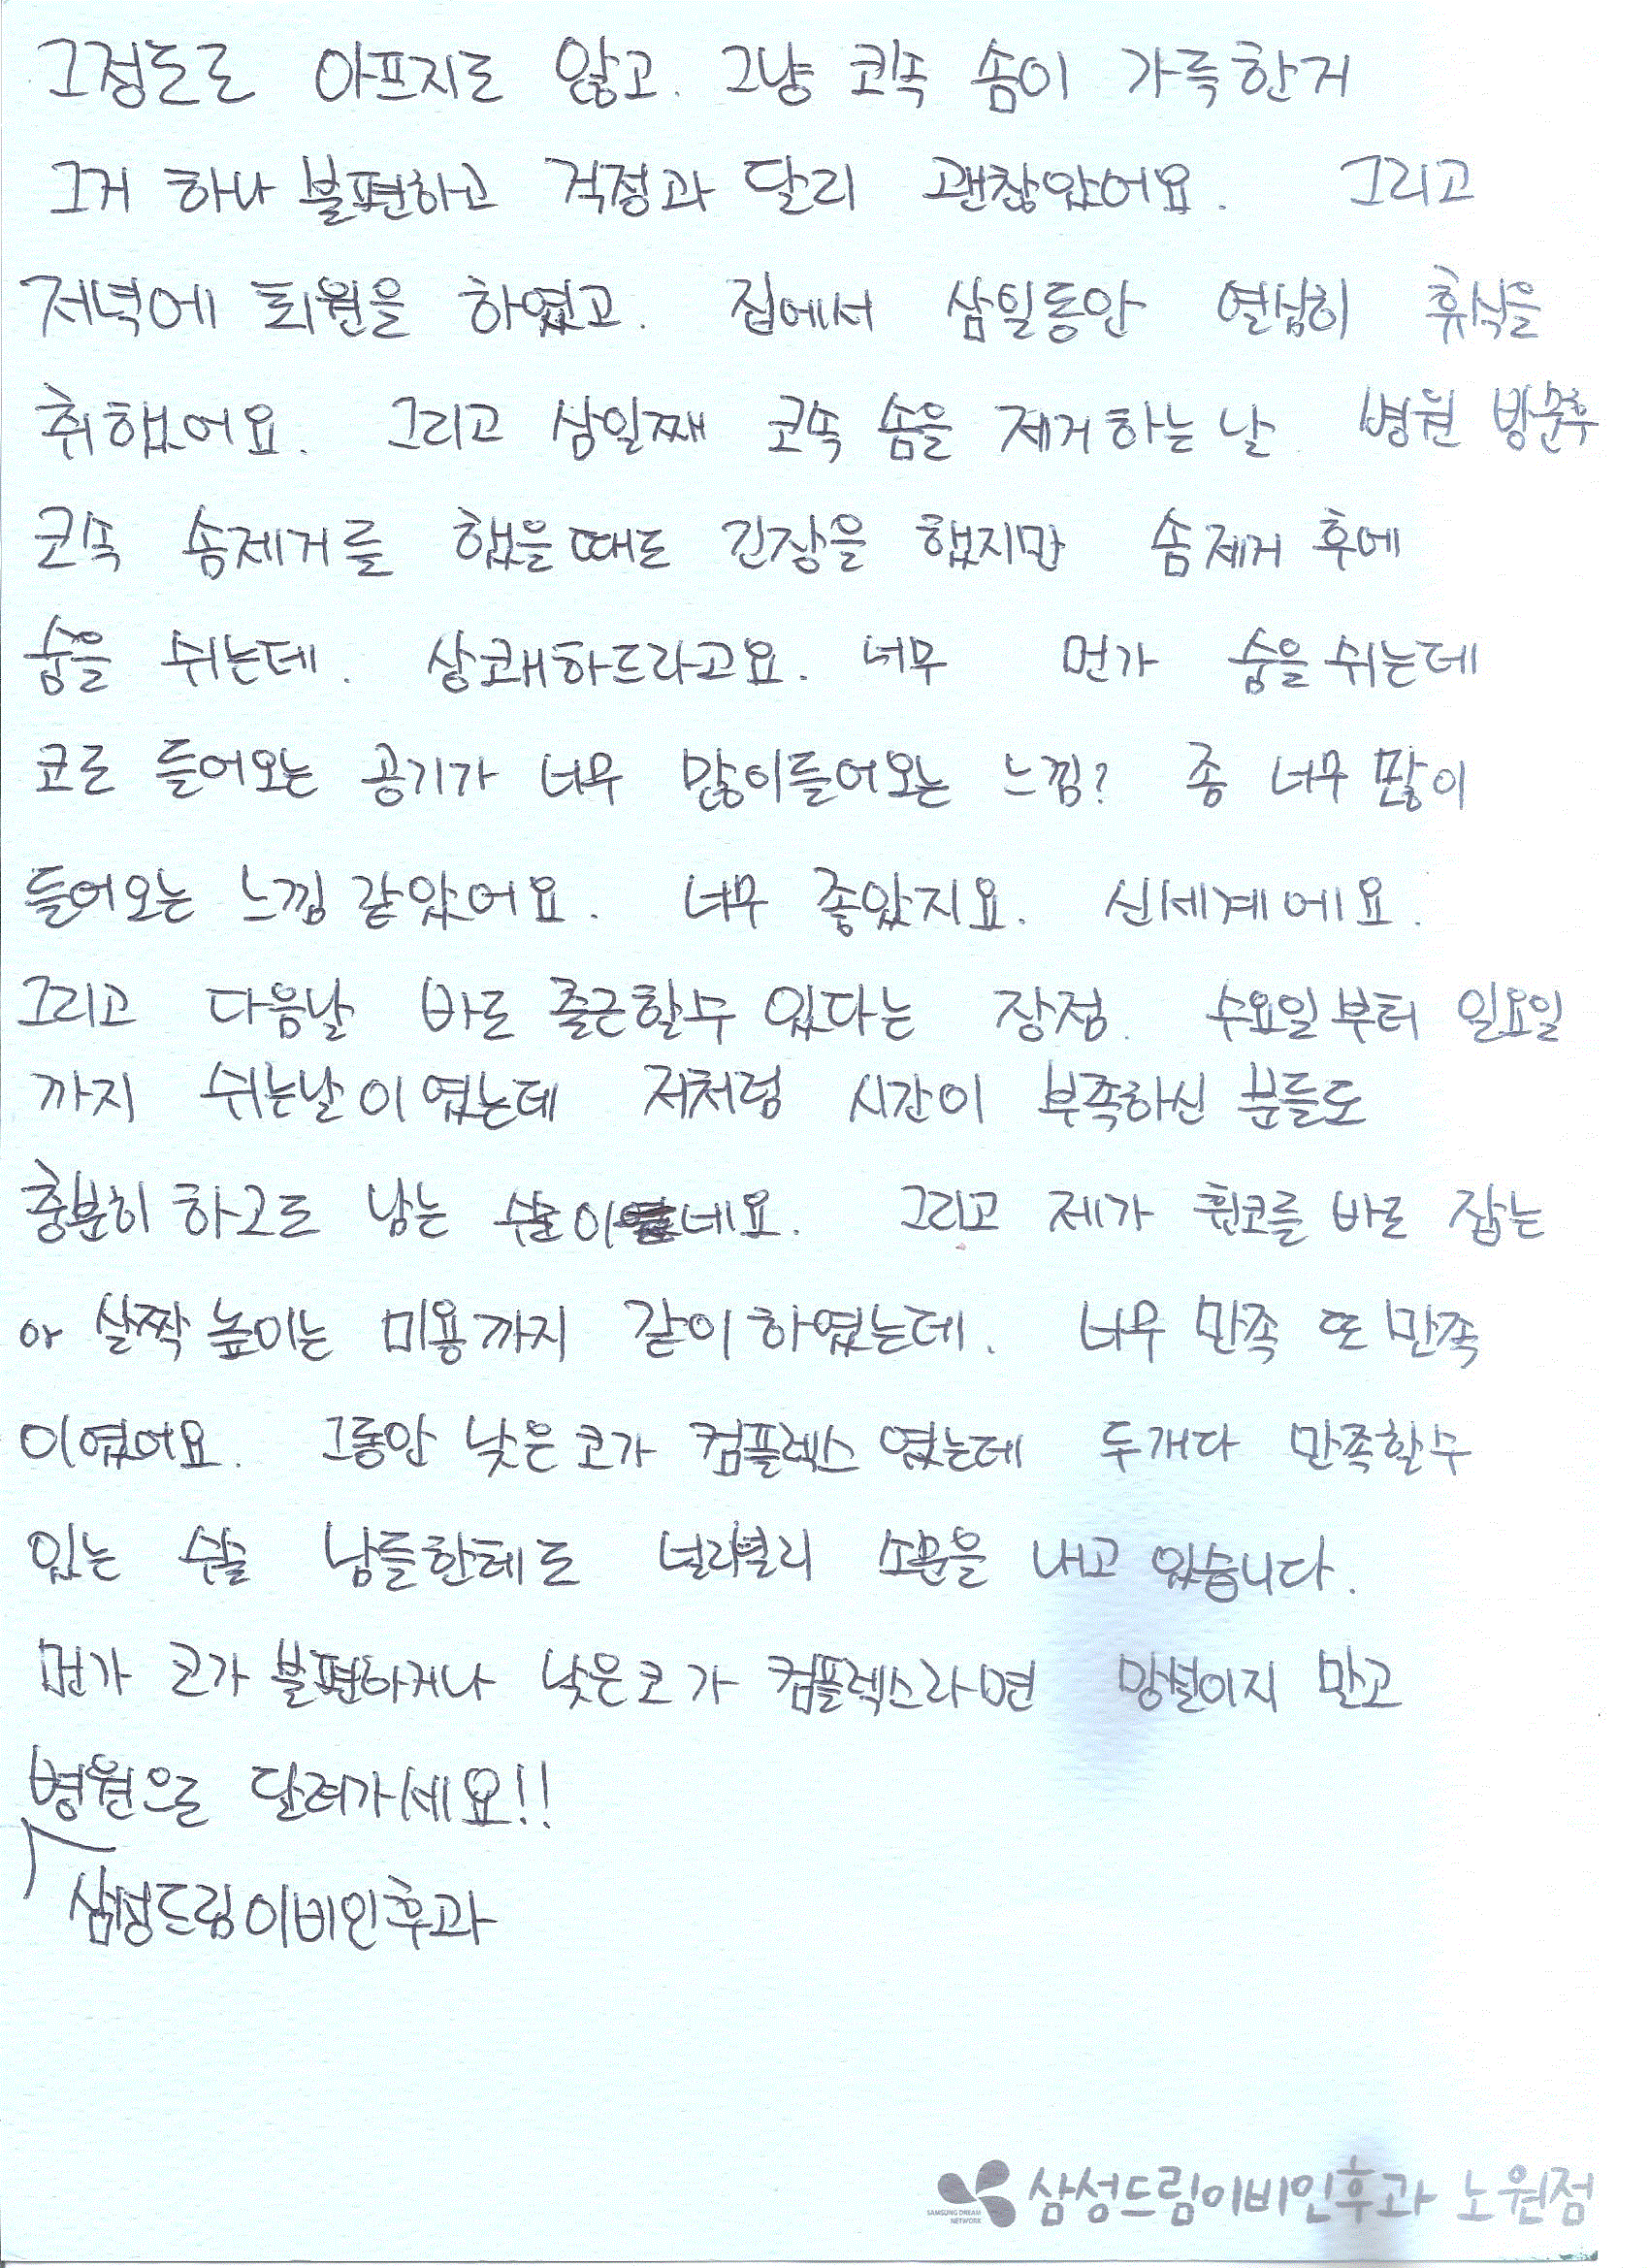 그정도로 아프지도 않고. 그냥 코속 솜이 가득한거
그거 하나 불편하고 걱정과 달리 괜찮았어요. 그리고
저녁에 퇴원을 하였고. 집에서 삼일동안 열심히 휴식을
취했어요. 그리고 삼일째 코속 솜을 제거하는날 병원 방문후
코속 솜제거를 했을때도 긴장을 했지만 솜제거 후에
숨을 쉬는데. 상쾌하드라고요. 너무 먼가 숨을쉬는데
코로 들어오는 공기가 너무 많이들어오는 느낌? 좀 너무많이
들어오는 느낌같았어요. 너무 좋았지요. 신세계에요.
그리고 다음날 바로 출근할수 있다는 장점. 수요일부터 일요일
까지 쉬는날이였는데 저처럼 시간이 부족하신 분들도
충분히 하고도 남는 수술이네요. 그리고 제가 휜코를 바로 잡는
or 살짝 높이는 미용까지 같이하였는데. 너무 만족 또만족
이였어요. 그동안 낮은코가 컴플렉스였는데 두개다 만족할수
있는 수술 남들한테도 널리널리 소문을 내고있습니다.
먼가 코가 불편하거나 낮은코가 컴플렉스라면 망설이지 만고
병원으로 달려가세요!!
삼성드림이비인후과
SAMSUNG DREAM NETWORK 삼성드림이비인후과 노원점